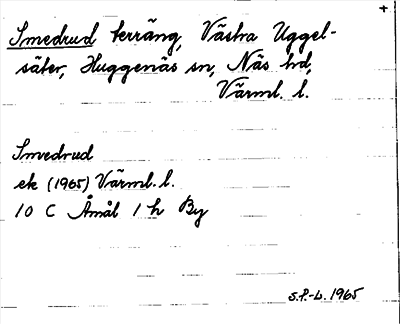 +
Smedrud terräng, Västra Uggel-
säter, Huggenäs sn, Näs hd,
Värml. l.
Smedrud
ek (1965) Värml. l.
10 C Åmål 1 h By
S.P.-L. 1965